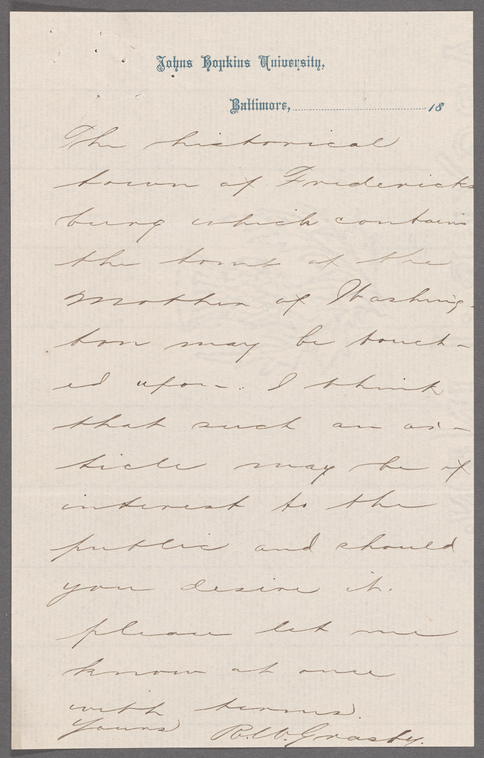 Johns Hopkins University,
Baltimore, 18
The historical
town of Fredericks
burg which contains
the tomb of the
Mother of Washing-
ton may be touch-
ed upon. I think
that such an ar-
ticle may be of
interest to the
public and should
you desire it.
please let me
know at once
with terms.
Yours R.W. Grasty.